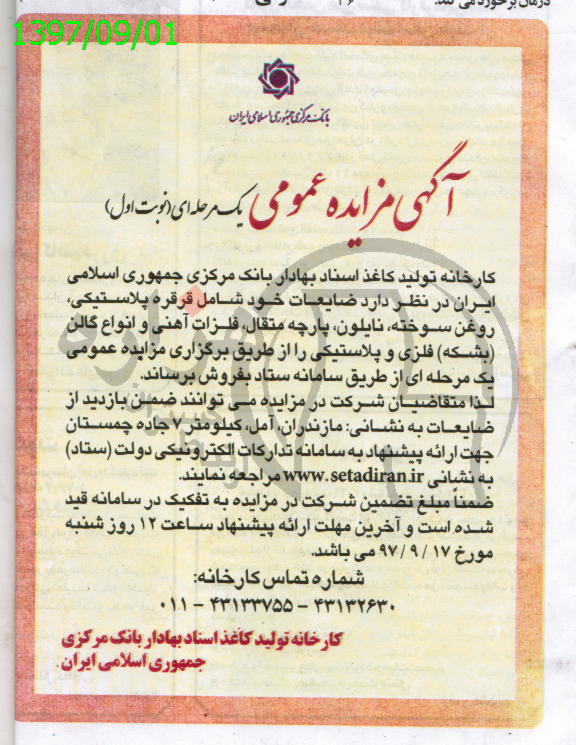 درمان برخورد می کند.
1397/09/01
بانک مرکزی جمهوری اسلامی ایران
آگهی مزایده عمومی یک مرحله ای (نوبت اول)
کارخانه تولید کاغذ اسناد بهادار بانک مرکزی جمهوری اسلامی
ایران در نظر دارد ضایعات خود شامل قرقره پلاستیکی،
روغن سوخته، نایلون، پارچه متقال، فلزات آهنی و انواع گالن
(بشکه) فلزی و پلاستیکی را از طریق برگزاری مزایده عمومی
یک مرحله ای از طریق سامانه ستاد بفروش برساند.
لـذا متقاضیـان شـرکت در مزایده مـی توانند ضمـن بازدید از
ضایعـات به نشـانی: مازنـدران، آمل، کیلومتر ۷ جاده چمسـتان
جهت ارائه پیشنهاد به سامانه تدارکات الکترونیکی دولت (ستاد)
به نشانی www.setadiran.ir مراجعه نمایند.
ضمناً مبلغ تضمین شـرکت در مزایده به تفکیک در سامانه قید
شـده اسـت و آخرین مهلت ارائه پیشنهاد سـاعت ۱۲ روز شنبه
مورخ ۹۷/۹/۱۷ می باشد.
شماره تماس کارخانه:
۰۱۱ – ۴۳۱۳۳۷۵۵ – ۴۳۱۳۲۶۳۰
کارخانه تولید کاغذ اسناد بهادار بانک مرکزی
جمهوری اسلامی ایران